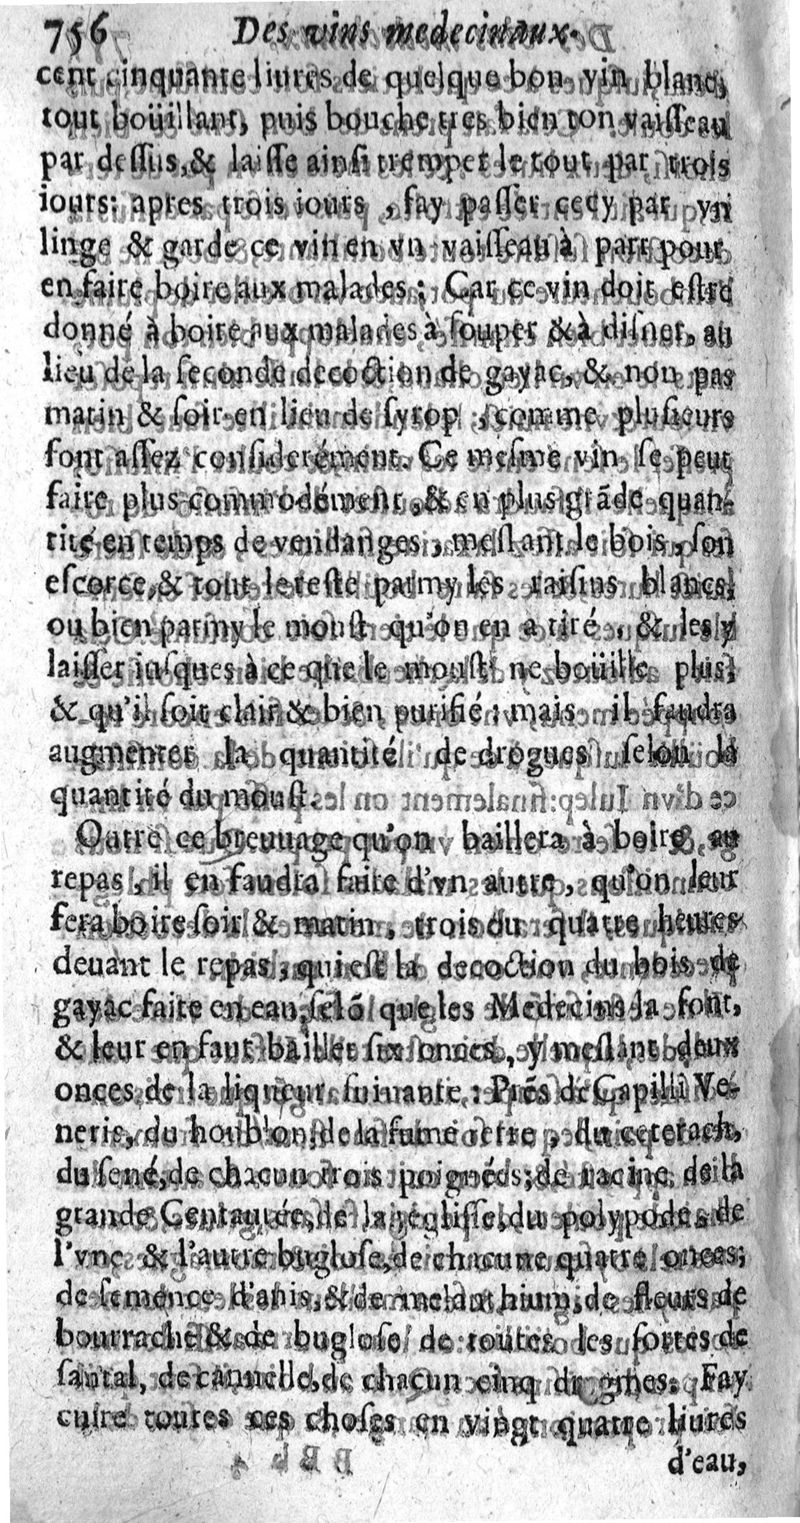 756 Des vins medecinaux.
cent cinquante liures de quelque bon vin blanc,
tout boüillant, puis bouche tres bien ton vaisseau
par dessus, & laisse ainsi tremper le tout par trois
iours: apres trois iours, fay passer cecy par vn
linge & garde ce vin en vn vaisseau à part pour
en faire boire aux malades; Car ce vin doit estre
donné à boire aux malades à souper & à disner, au
lieu de la seconde decoction de gayac, & non pas
matin & soir en lieu de syrop, comme plusieurs
font assez considerément. Ce mesme vin se peut
faire plus commodément, & en plus grãde quan-
tité en temps de vendanges, meslant le bois, son
escorce, & tout le reste parmy les raisins blancs,
ou bien parmy le moust qu'on en a tiré, & les y
laisser iusques à ce que le moust ne boüille plus,
& qu'il soit clair & bien purifié: mais il faudra
augmenter la quantité de drogues selon la
quantité du moust.
Outre ce breuuage qu'on baillera à boire au
repas, il en faudra faire d'vn autre, qu'on leur
fera boire soir & matin, trois ou quatre heures
deuant le repas, qui est la decoction du bois de
gayac faite en eau, selõ que les Medecins la font,
& leur en faut bailler six onces, y meslant deux
onces de la liqueur suiuante: Prés de Capilli Ve-
neris, du houblon, de la fume terre, du ceterach,
du sené, de chacun trois poignées; de racine de la
grande Centaurée, de la réglisse, du polypode, de
l'vne & l'autre buglose, de chacune quatre onces;
de semence d'anis, & de melãthium, de fleurs de
bourrache & de buglose de toutes les sortes de
santal, de cannelle, de chacun cinq dragmes. Fay
cuire toutes ces choses en vingt quatre liures
d'eau,